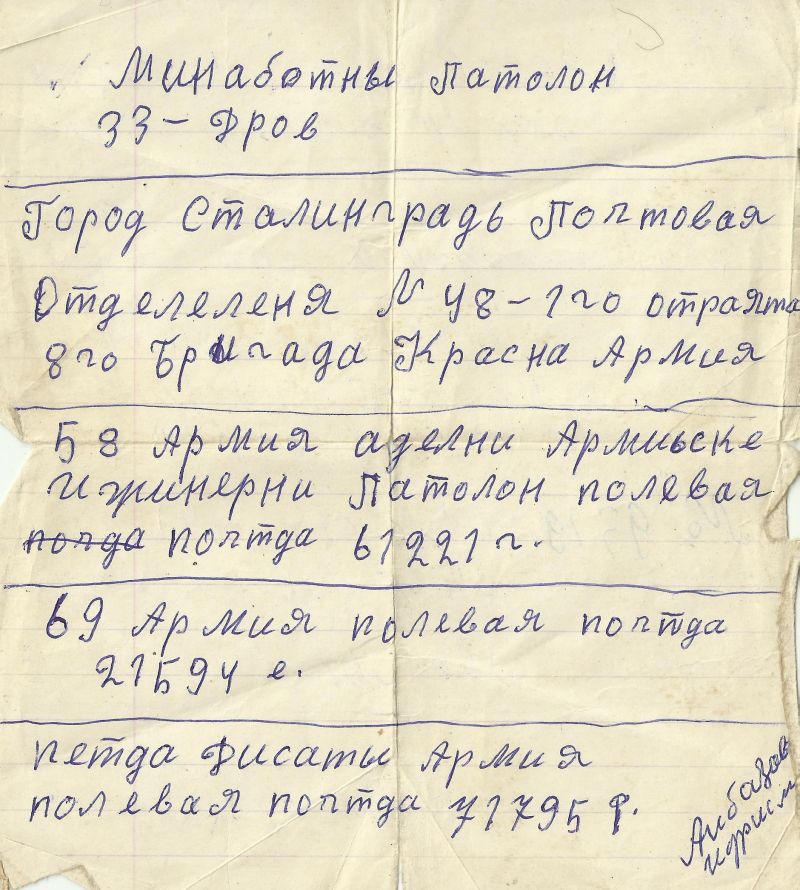 Минаботны Патолон
33 - Дров
Город Сталинградь Почтовая
Отделеленя N 48 - 1го отраята
8го Бригада Красна Армия
58 Армия аделни Армиьске
Ижинерни Патолон полевая
почда почтда 61221 г.
69 Армия полевая почтда
21594 е.
петда Дисаты Армия
полевая почтда 71795 ф.